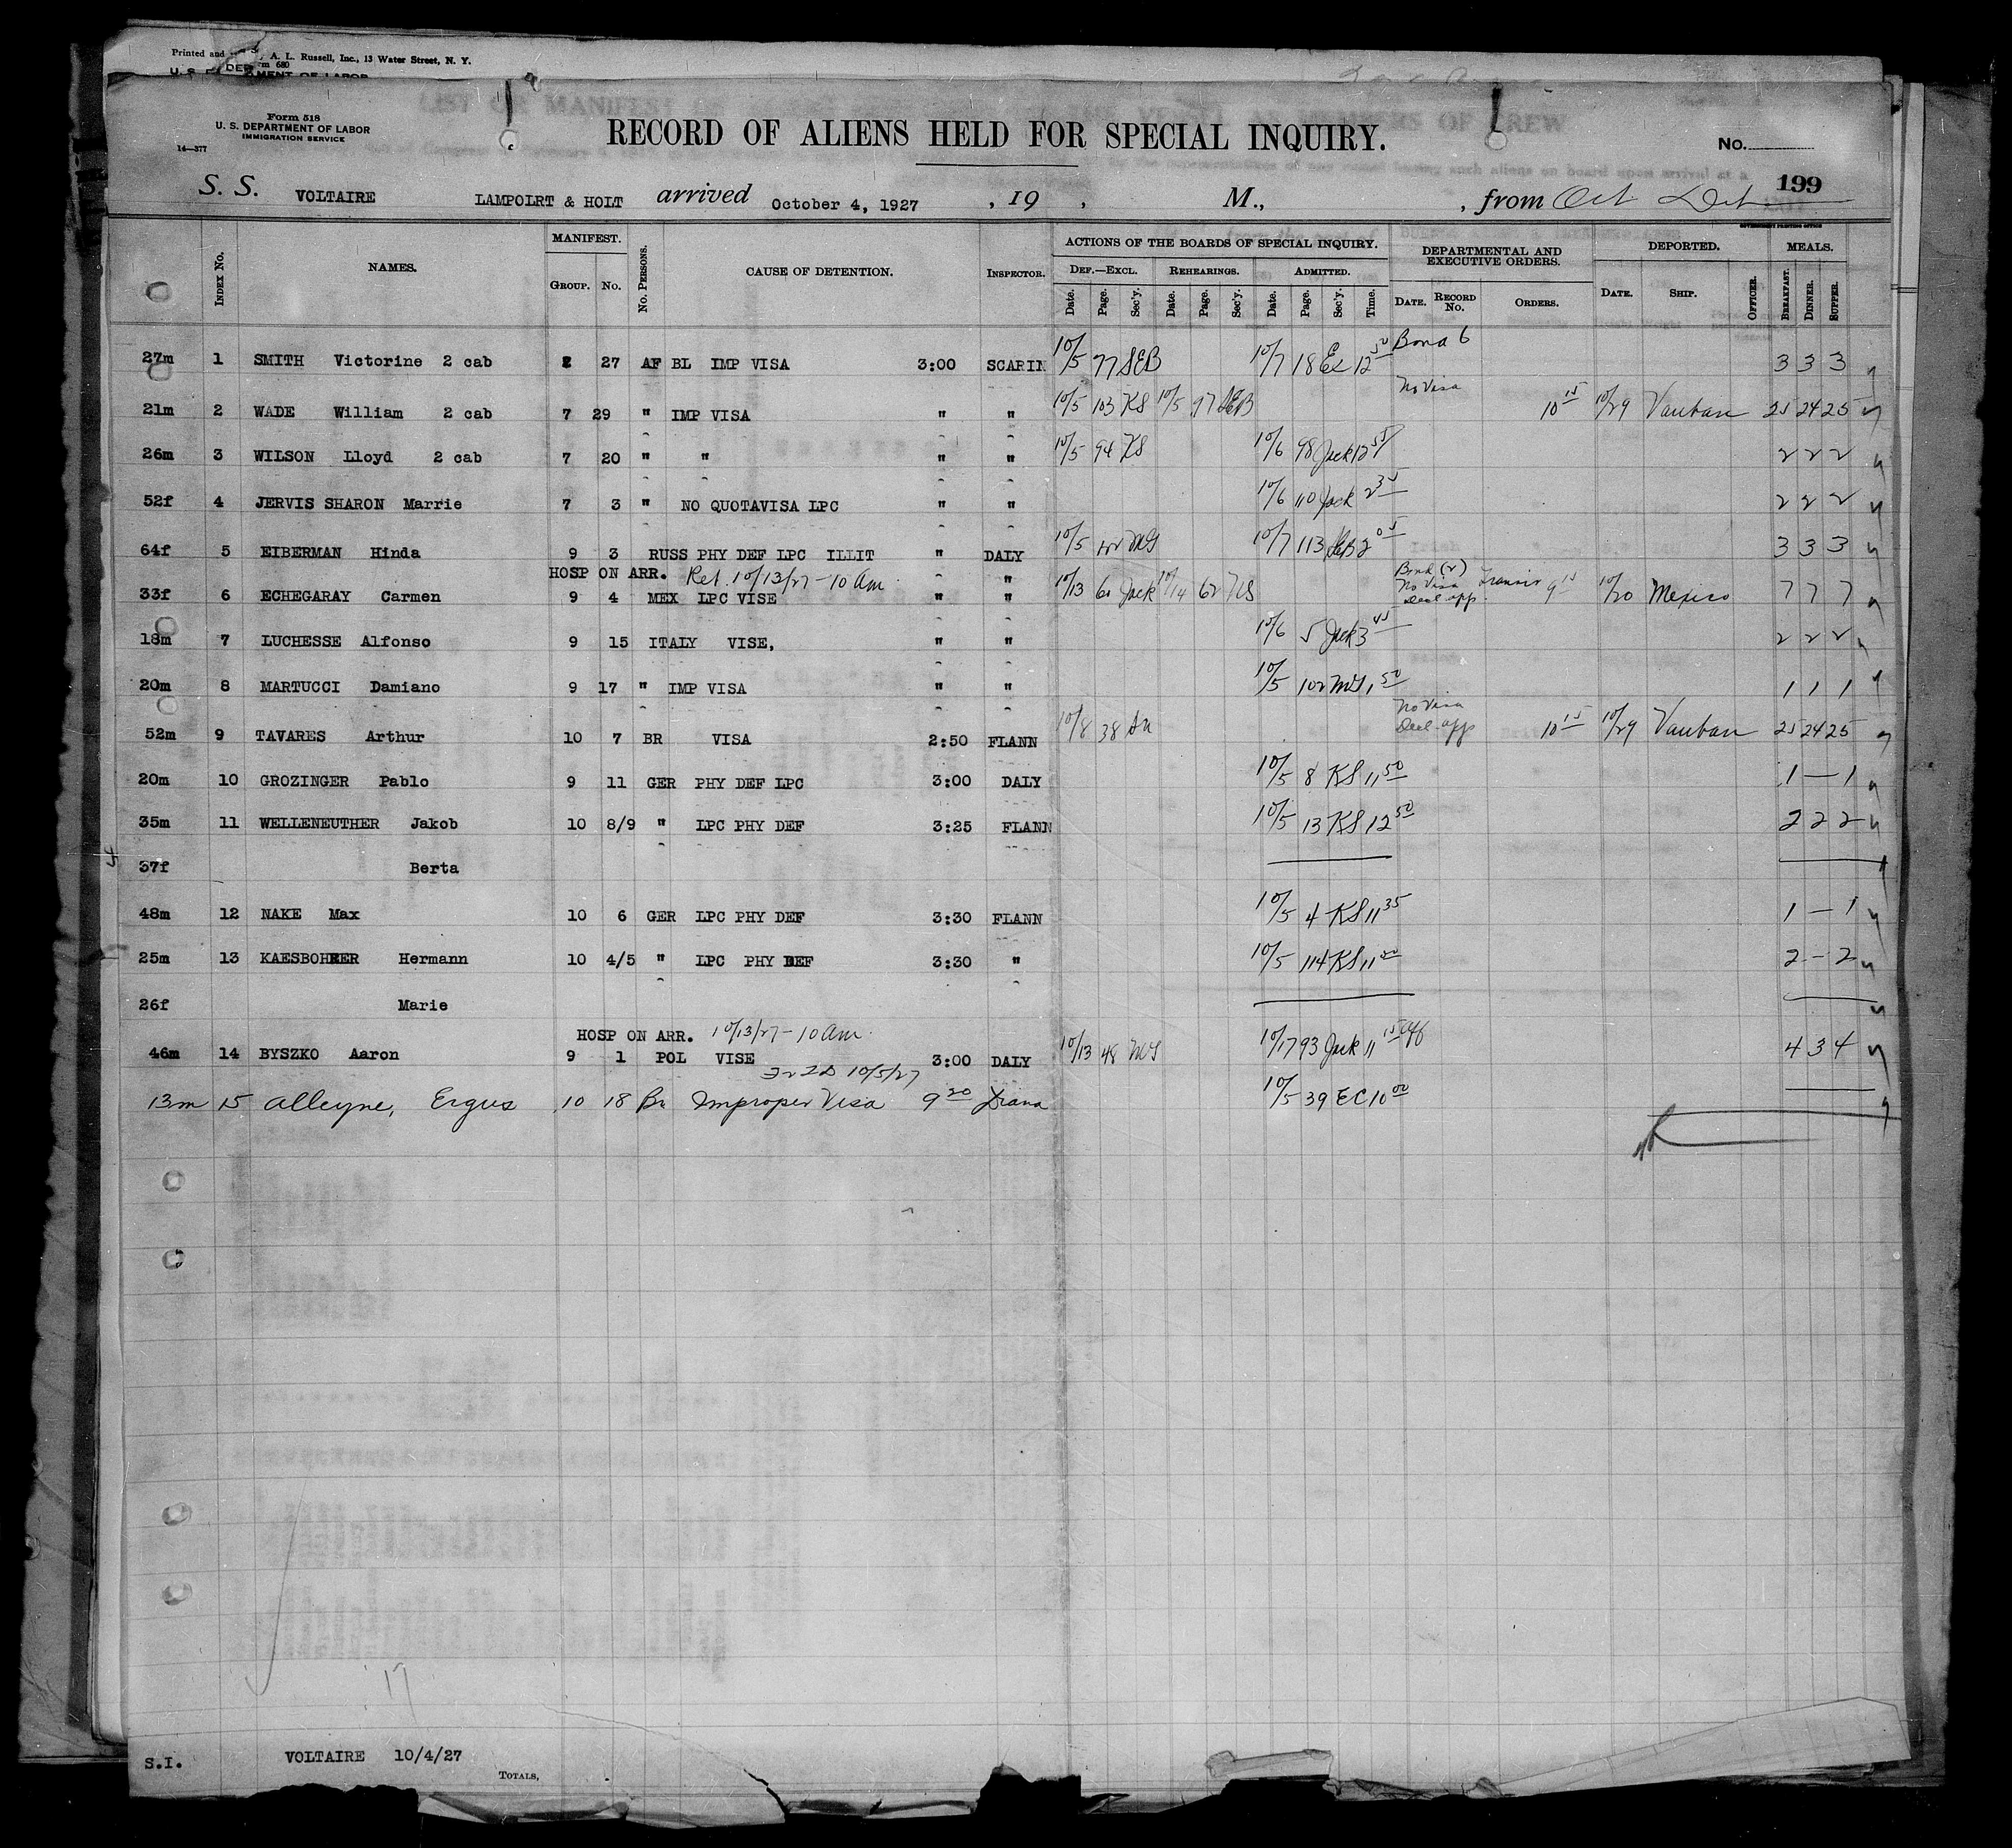 Printed and A. L. Russell, Inc., 13 Water Street, N. Y.
Form 518
U. S. DEPARTMENT OF LABOR
IMMIGRATION SERVICE
14—377
RECORD OF ALIENS HELD FOR SPECIAL INQUIRY.
No.
199
S. S. VOLTAIRE LAMPOIRT & HOLT arrived October 4, 1927 , 19 , M., , from Oct Det
INDEX No. NAMES. MANIFEST. GROUP. No. No. PERSONS. CAUSE OF DETENTION. INSPECTOR. ACTIONS OF THE BOARDS OF SPECIAL INQUIRY. DEF.—EXCL. Date. Page. Sec'y. REHEARINGS. Date. Page. Sec'y. ADMITTED. Date. Page. Sec'y. Time. DEPARTMENTAL AND EXECUTIVE ORDERS. DATE. RECORD No. ORDERS. DEPORTED. DATE. SHIP. OFFICER. MEALS. BREAKFAST. DINNER. SUPPER.
27m 1 SMITH Victorine 2 cab 2 27 AF BL IMP VISA 3:00 SCARIN 10/5 77 SEB 10/7 18 Ec 12 50 Bond 6 3 3 3
21m 2 WADE William 2 cab 7 29 " IMP VISA " " 10/5 103 KS 10/5 97 SEB No Visa 10 15 10/29 Vauban 25 24 25
26m 3 WILSON Lloyd 2 cab 7 20 " " " " 10/5 94 KS 10/6 98 Jack 12 55 2 2 2
52f 4 JERVIS SHARON Marrie 7 3 " NO QUOTAVISA LPC " " 10/6 110 Jack 2 35 2 2 2
64f 5 EIBERMAN Hinda 9 3 RUSS PHY DEF LPC ILLIT " DALY 10/5 10/7 113 SEB 2 05 3 3 3
HOSP ON ARR. Ret. 10/13/27 - 10 am.
33f 6 ECHEGARAY Carmen 9 4 MEX LPC VISE " " 10/13 60 Jack 10/14 62 Bond (2) No Visa Decl-app. Transit 9 15 10/20 Mexico 7 7 7
18m 7 LUCHESSE Alfonso 9 15 ITALY VISE, " " 10/6 5 Jack 3 45 2 2 2
20m 8 MARTUCCI Damiano 9 17 " IMP VISA " " 10/5 102 1 50 1 1 1
52m 9 TAVARES Arthur 10 7 BR VISA 2:50 FLANN 10/8 38 No Visa Decl-app 10 15 10/29 Vauban 25 24 25
20m 10 GROZINGER Pablo 9 11 GER PHY DEF LPC 3:00 DALY 10/5 8 KS 11 50 1 — 1
35m 11 WELLENEUTHER Jakob 10 8/9 " LPC PHY DEF 3:25 FLANN 10/5 13 KS 12 50 2 2 2
37f Berta
48m 12 NAKE Max 10 6 GER LPC PHY DEF 3:30 FLANN 10/5 4 KS 11 35 1 — 1
25m 13 KAESBOHRER Hermann 10 4/5 " LPC PHY DEF 3:30 " 10/5 114 KS 11 2 - 2
26f Marie
HOSP ON ARR. 10/13/27 - 10 am.
46m 14 BYSZKO Aaron 9 1 POL VISE 3:00 DALY 10/13 48 10/17 93 Jack 11 15 4 3 4
10/5/27
13m 15 Alleyne, Ergus 10 18 Br Improper Visa 9 20 Diana 10/5 39 EC 10 00
17
S.I. VOLTAIRE 10/4/27
TOTALS,